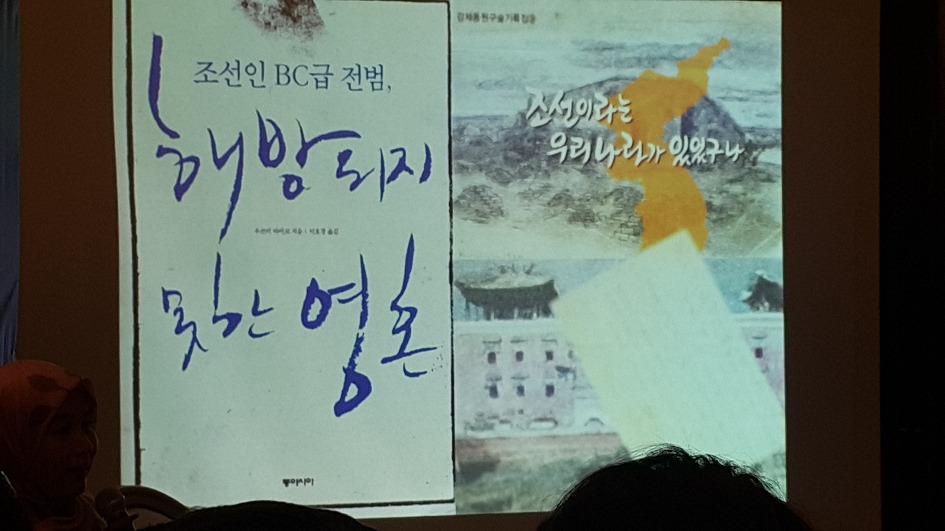 조선인 BC급 전범,
해방되지
못한 영혼
우쓰미 아이코 지음 | 이호경 옮김
동아시아
강제동원구술기록집⑧
조선이라는
우리나라가 있었구나